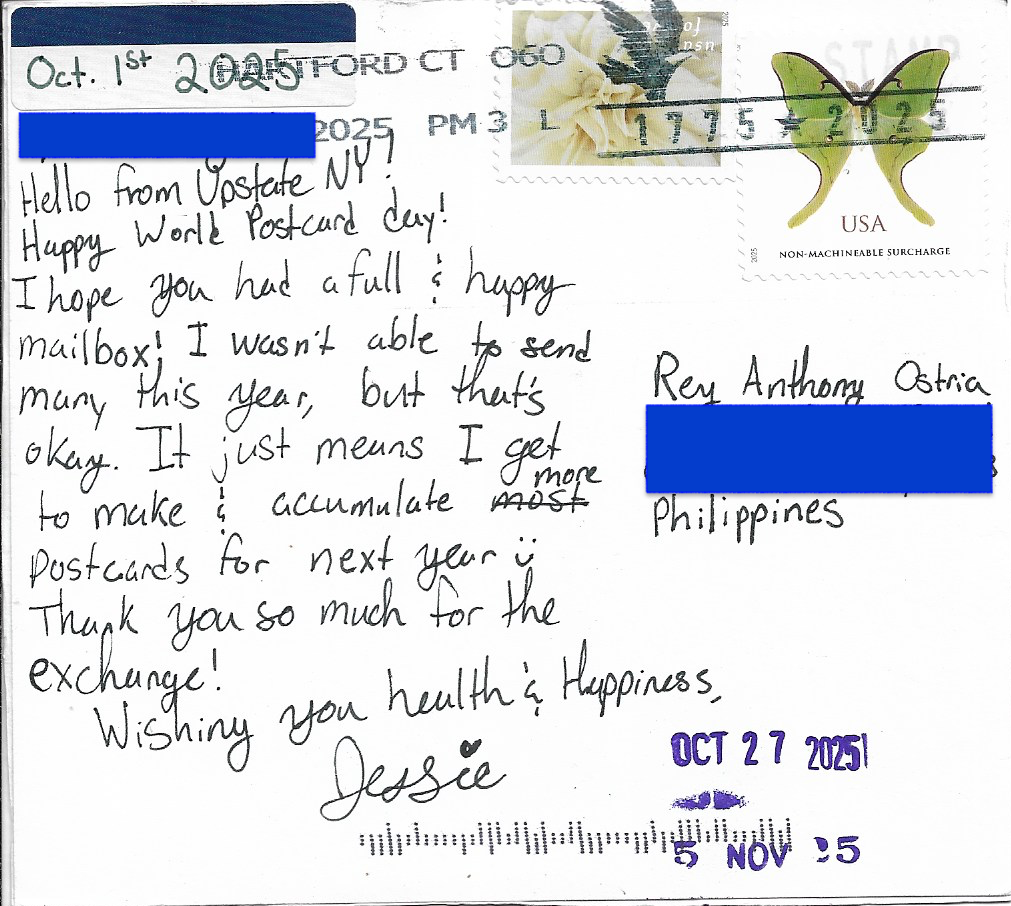 Oct. 1st 2025
HARTFORD CT 060
2025 PM 3 L
1775 ★ 2025
USA
NON-MACHINEABLE SURCHARGE
2025
Hello from Upstate NY!
Happy World Postcard day!
I hope you had a full & happy
mailbox! I wasn't able to send
many this year, but that's
okay. It just means I get
to make & accumulate most more
Postcards for next year ü
Thank you so much for the
exchange!
Wishing you health & Happiness,
Jessie
Rey Anthony Ostria
Philippines
OCT 27 2025
5 NOV 25